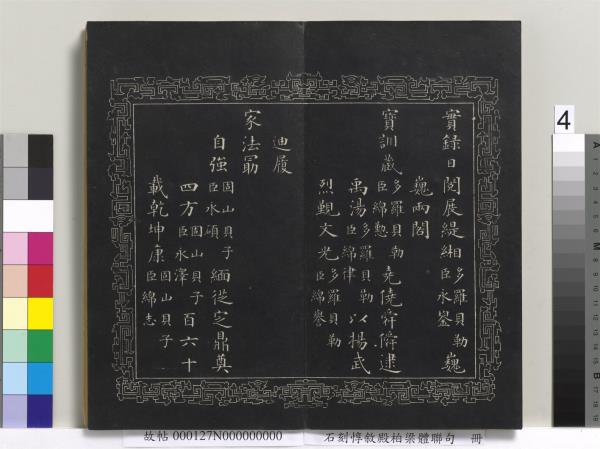 實錄日閱展緹緗多羅貝勒臣永鋆巍
巍兩閣
寶訓藏多羅貝勒臣綿懃堯僥舜僢逮
禹湯多羅貝勒臣綿律以揚武
烈覲文光多羅貝勒臣綿譽
迪履
家法勗
自強固山貝子臣永碩緬從定鼎奠
四方固山貝子臣永澤百六十
載乾坤康固山貝子臣綿志
故帖 000127N000000000 石刻惇敘殿柏梁體聯句 冊
4
A
M
B